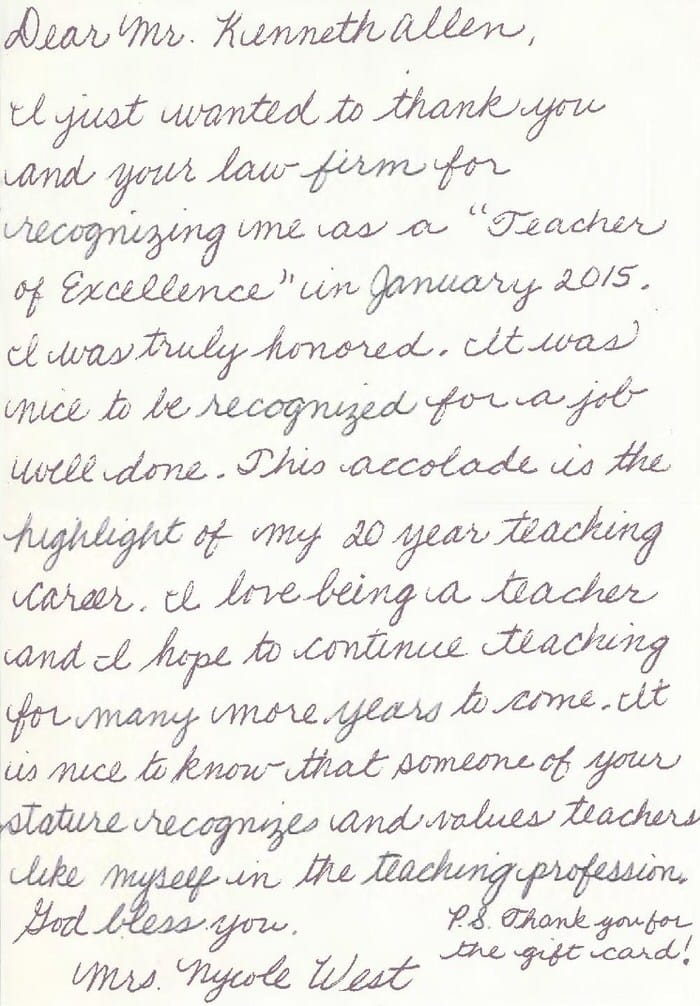 Dear Mr. Kenneth Allen,
I just wanted to thank you
and your law firm for
recognizing me as a "Teacher
of Excellence" in January 2015.
I was truly honored. It was
nice to be recognized for a job
well done. This accolade is the
highlight of my 20 year teaching
career. I love being a teacher
and I hope to continue teaching
for many more years to come. It
is nice to know that someone of your
stature recognizes and values teachers
like myself in the teaching profession.
God bless you.
Mrs. Nycole West
P.S. Thank you for
the gift card!